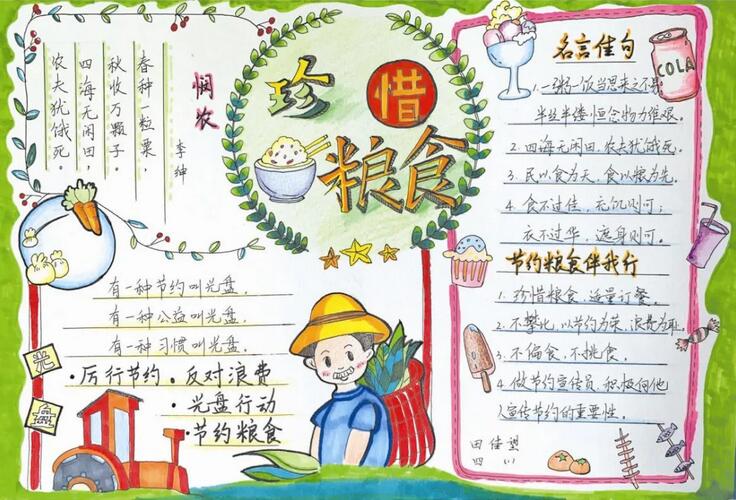 珍惜
粮食
悯农
李绅
春种一粒粟，
秋收万颗子。
四海无闲田，
农夫犹饿死。
有一种节约叫光盘，
有一种公益叫光盘，
有一种习惯叫光盘。
·厉行节约。反对浪费
·光盘行动
·节约粮食
光
盘
名言佳句
COLA
1.一粥一饭当思来之不易
半丝半缕恒念物力维艰。
2.四海无闲田，农夫犹饿死。
3.民以食为天，食以粮为先。
4.食不过佳，充饥则可；
衣不过华，遮身则可。
节约粮食伴我行
1.珍惜粮食，适量订餐。
2.不攀比，以节约为荣，浪费为耻。
3.不偏食，不挑食。
4.做节约宣传员，积极向他
人宣传节约的重要性。
田佳
四